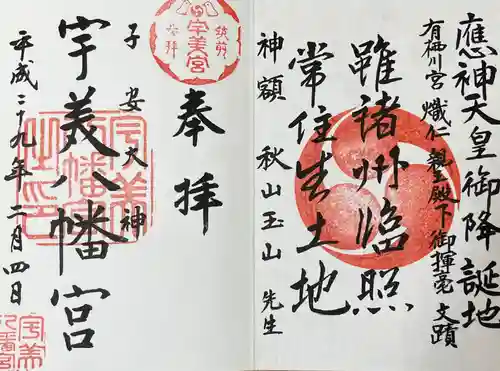 應神天皇御降誕地
有栖川宮熾仁親王殿下御揮毫文蹟
雖諸州臨照
常住生土地
神額 秋山玉山 先生
奉拝
筑前
宇美宮
参拝
子安大神
宇美八幡宮
平成二十九年二月四日
宇美
八幡宮